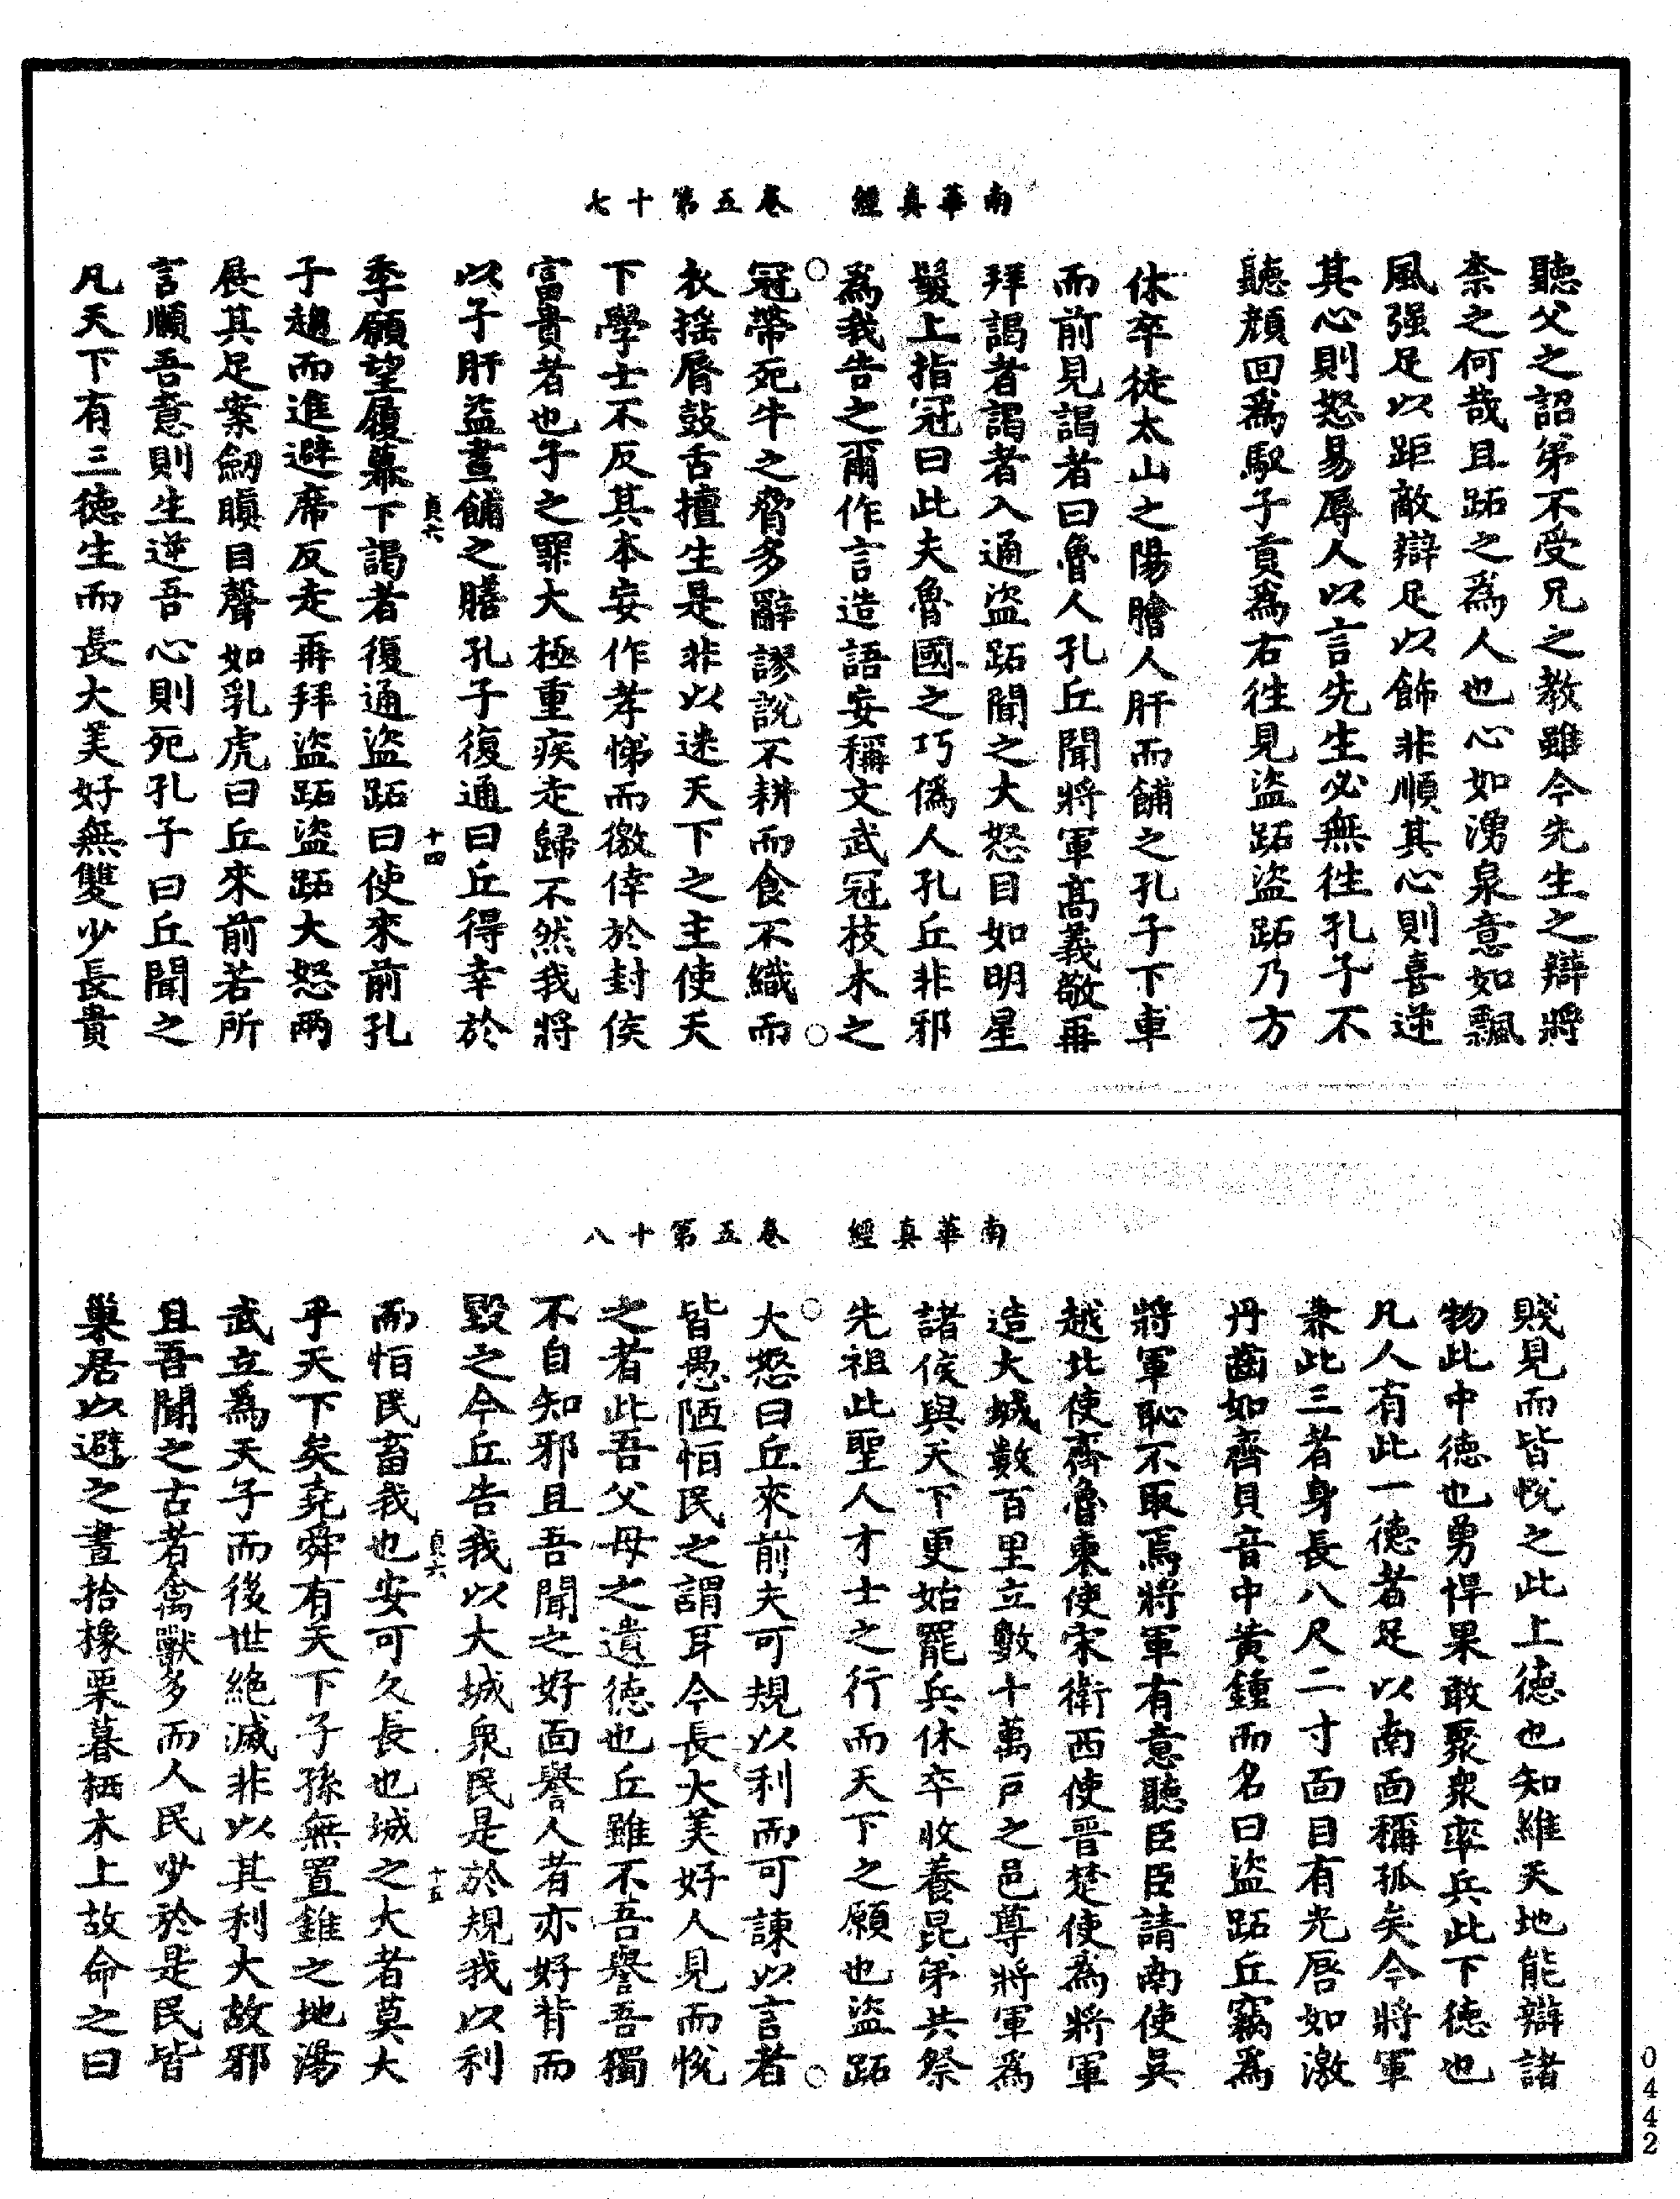 南華真經　卷五第十七
聽父之詔弟不受兄之教雖今先生之辯將
柰之何哉且跖之爲人也心如湧泉意如飄
風强足以距敵辯足以飾非順其心則喜逆
其心則怒易辱人以言先生必無徃孔子不
聽顔回爲馭子貢爲右徃見盜跖盜跖乃方
休卒徒太山之陽膾人肝而餔之孔子下車
而前見謁者曰魯人孔丘聞將軍髙義敬再
拜謁者謁者入通盜跖聞之大怒目如明星
髮上指冠曰此夫魯國之巧僞人孔丘非邪
爲我告之爾作言造語妄稱文武冠枝木之
冠帶死牛之脅多辭謬說不耕而食不織而
衣摇脣鼓舌擅生是非以迷天下之主使天
下學士不反其本妄作孝悌而儌倖於封侯
富貴者也子之罪大極重疾走歸不然我將
以子肝益晝餔之膳孔子復通曰丘得幸於
貞六　十四
季願望履幕下謁者復通盜跖曰使來前孔
子趨而進避席反走再拜盜跖盜跖大怒兩
展其足案劒瞋目聲如乳虎曰丘來前若所
言順吾意則生逆吾心則死孔子曰丘聞之
凡天下有三德生而長大美好無雙少長貴
南華真經　卷五第十八
賤見而皆悅之此上德也知維天地能辯諸
物此中德也勇悍果敢聚衆率兵此下德也
凡人有此一德者足以南面稱孤矣今將軍
兼此三者身長八尺二寸面目有光唇如激
丹齒如齊貝音中黃鍾而名曰盜跖丘竊爲
將軍恥不取焉將軍有意聽臣臣請南使吳
越北使齊魯東使宋衛西使晉楚使爲將軍
造大城數百里立數十萬戶之邑尊將軍爲
諸侯與天下更始罷兵休卒收養昆弟共祭
先祖此聖人才士之行而天下之願也盜跖
大怒曰丘來前夫可規以利而可諫以言者
皆愚陋恒民之謂耳今長大美好人見而悅
之者此吾父母之遺德也丘雖不吾譽吾獨
不自知邪且吾聞之好面譽人者亦好背而
毀之今丘告我以大城衆民是於規我以利
貞六　十五
而恒民畜我也安可久長也城之大者莫大
乎天下矣堯舜有天下子孫無置錐之地湯
武立爲天子而後世絶滅非以其利大故邪
且吾聞之古者禽獸多而人民少於是民皆
巢居以避之晝拾橡栗暮栖木上故命之曰
0442